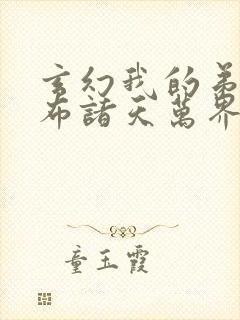 玄幻我的弟
布諸天萬界
童玉霞